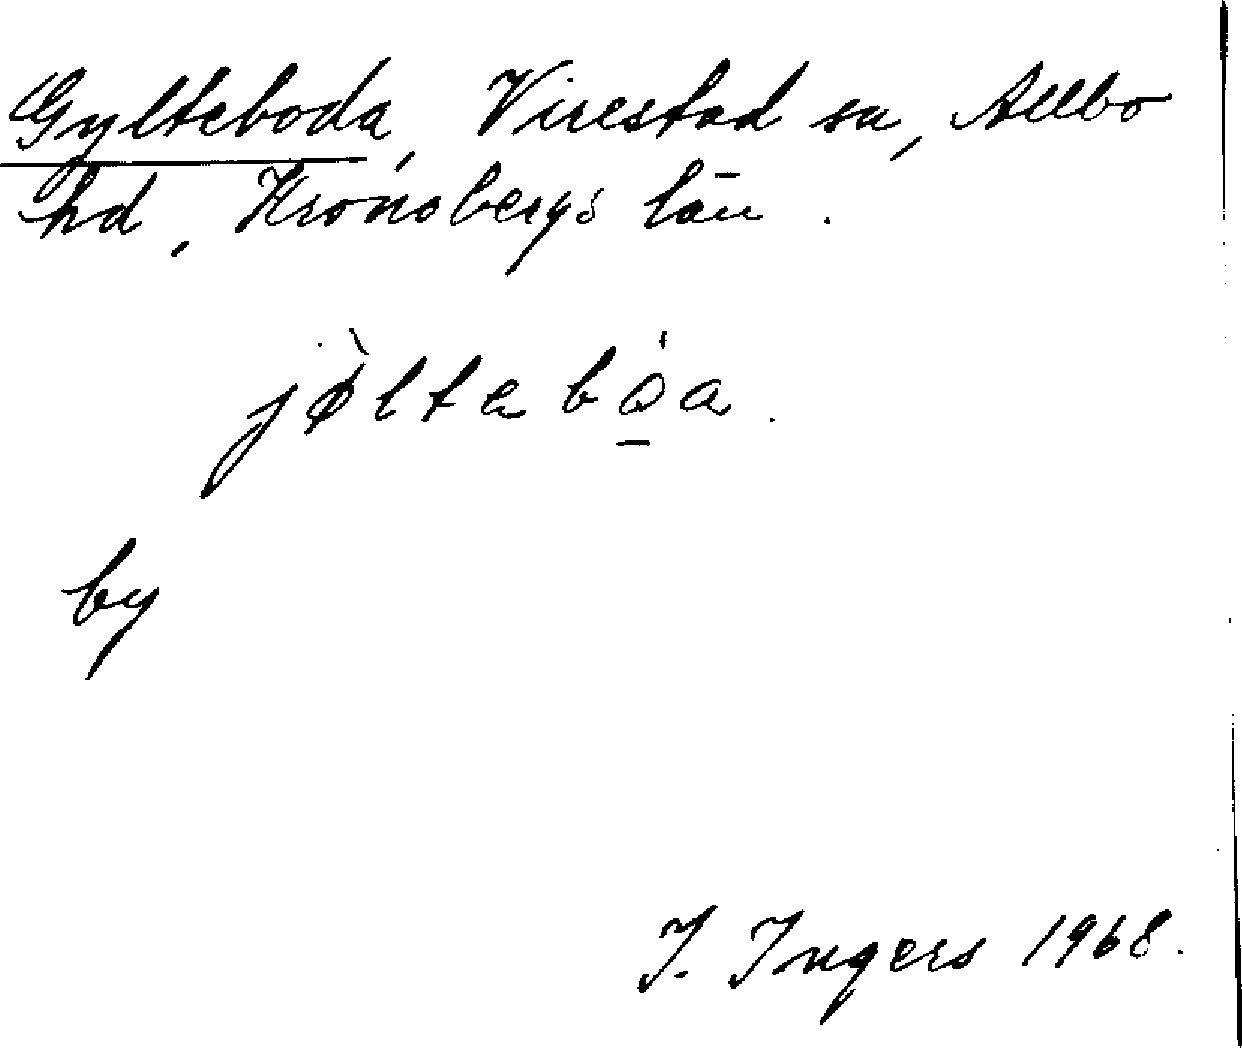 Gylteboda, Virestad sn, Allbo
hd, Kronobergs län.
jø̀ltabo̲̍a.
by
I. Ingers 1968.